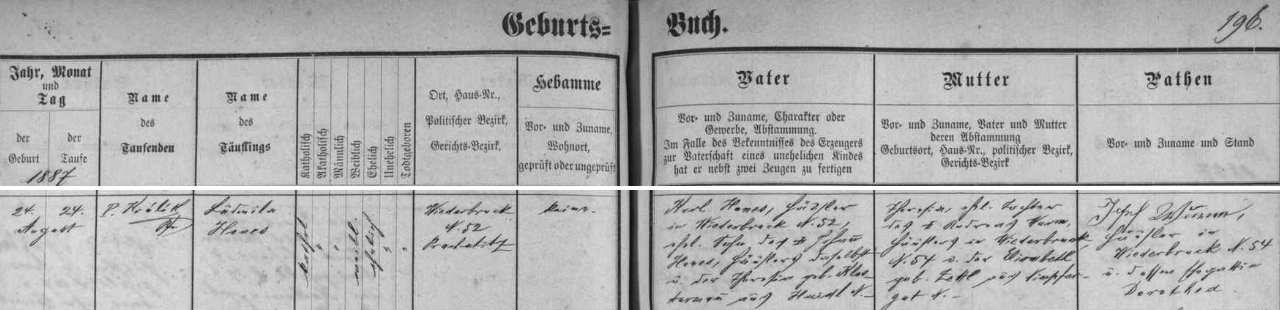 Geburts=
Buch.
196.
Jahr, Monat
und
Tag
der
Geburt
der
Taufe
1887
Name
des
Taufenden
Name
des
Täuflings
Katholisch
Akatholisch
Männlich
Weiblich
Ehelich
Unehelich
Todtgeboren
Ort, Haus-Nr.,
Politischer Bezirk,
Gerichts-Bezirk,
Hebamme
Vor- und Zuname,
Wohnort,
geprüft oder ungeprüft
Vater
Vor- und Zuname, Charakter oder
Gewerbe, Abstammung.
Im Falle des Bekenntnisses des Erzeugers
zur Vaterschaft eines unehelichen Kindes
hat er nebst zwei Zeugen zu fertigen
Mutter
Vor- und Zuname, Vater und Mutter
deren Abstammung
Geburtsort, Haus-Nr., politischer Bezirk,
Gerichts-Bezirk
Pathen
Vor- und Zuname und Stand
24.
24.
August
P. Králik
Ludmila
Hones
kathol.
weibl.
ehelich
Niederbruck
N. 52
Prachatitz
keine.
Karl Hones, Häusler
in Niederbruck N. 52,
ehl. Sohn des † Johann
Hones, Häuslers daselbst
u. der Theresia geb.
aus Haidl N. —
Theresia, ehl. Tochter
des † Andreas
Häuslers in Niederbruck
N. 54 u. der Elisabeth
geb. aus
gut N. —
Josef
Häusler in
Niederbruck N. 54
u. dessen Ehegattin
Dorothea.